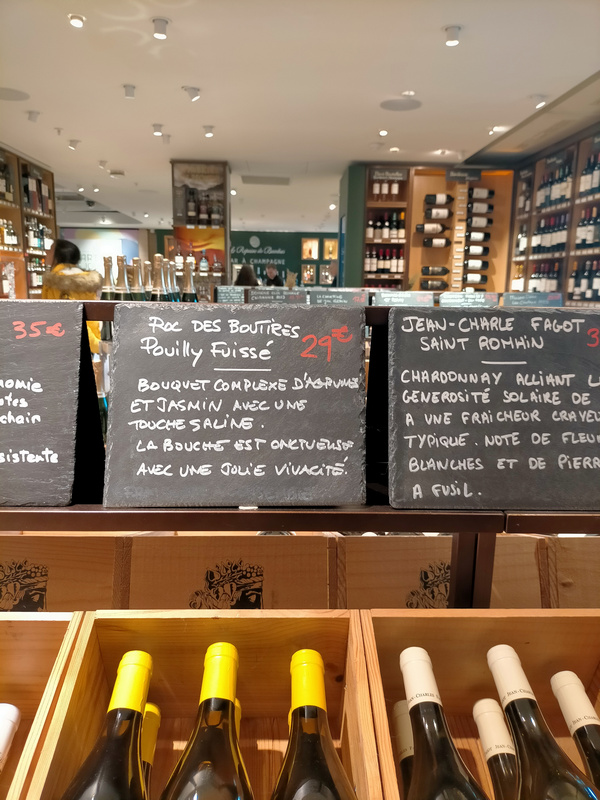 35€
nomie
chain
sistente
ROC DES BOUTIRES
Pouilly Fuissé
29€
BOUQUET COMPLEXE D'AGRUMES
ET JASMIN AVEC UNE
TOUCHE SALINE.
LA BOUCHE EST ONCTUEUSE
AVEC UNE JOLIE VIVACITÉ.
JEAN-CHARLE FAGOT
SAINT ROMAIN
3
CHARDONNAY ALLIANT L
GENEROSITÉ SOLAIRE DE
A UNE FRAICHEUR CRAYEU
TYPIQUE. NOTE DE FLEU
BLANCHES ET DE PIERR
A FUSIL.